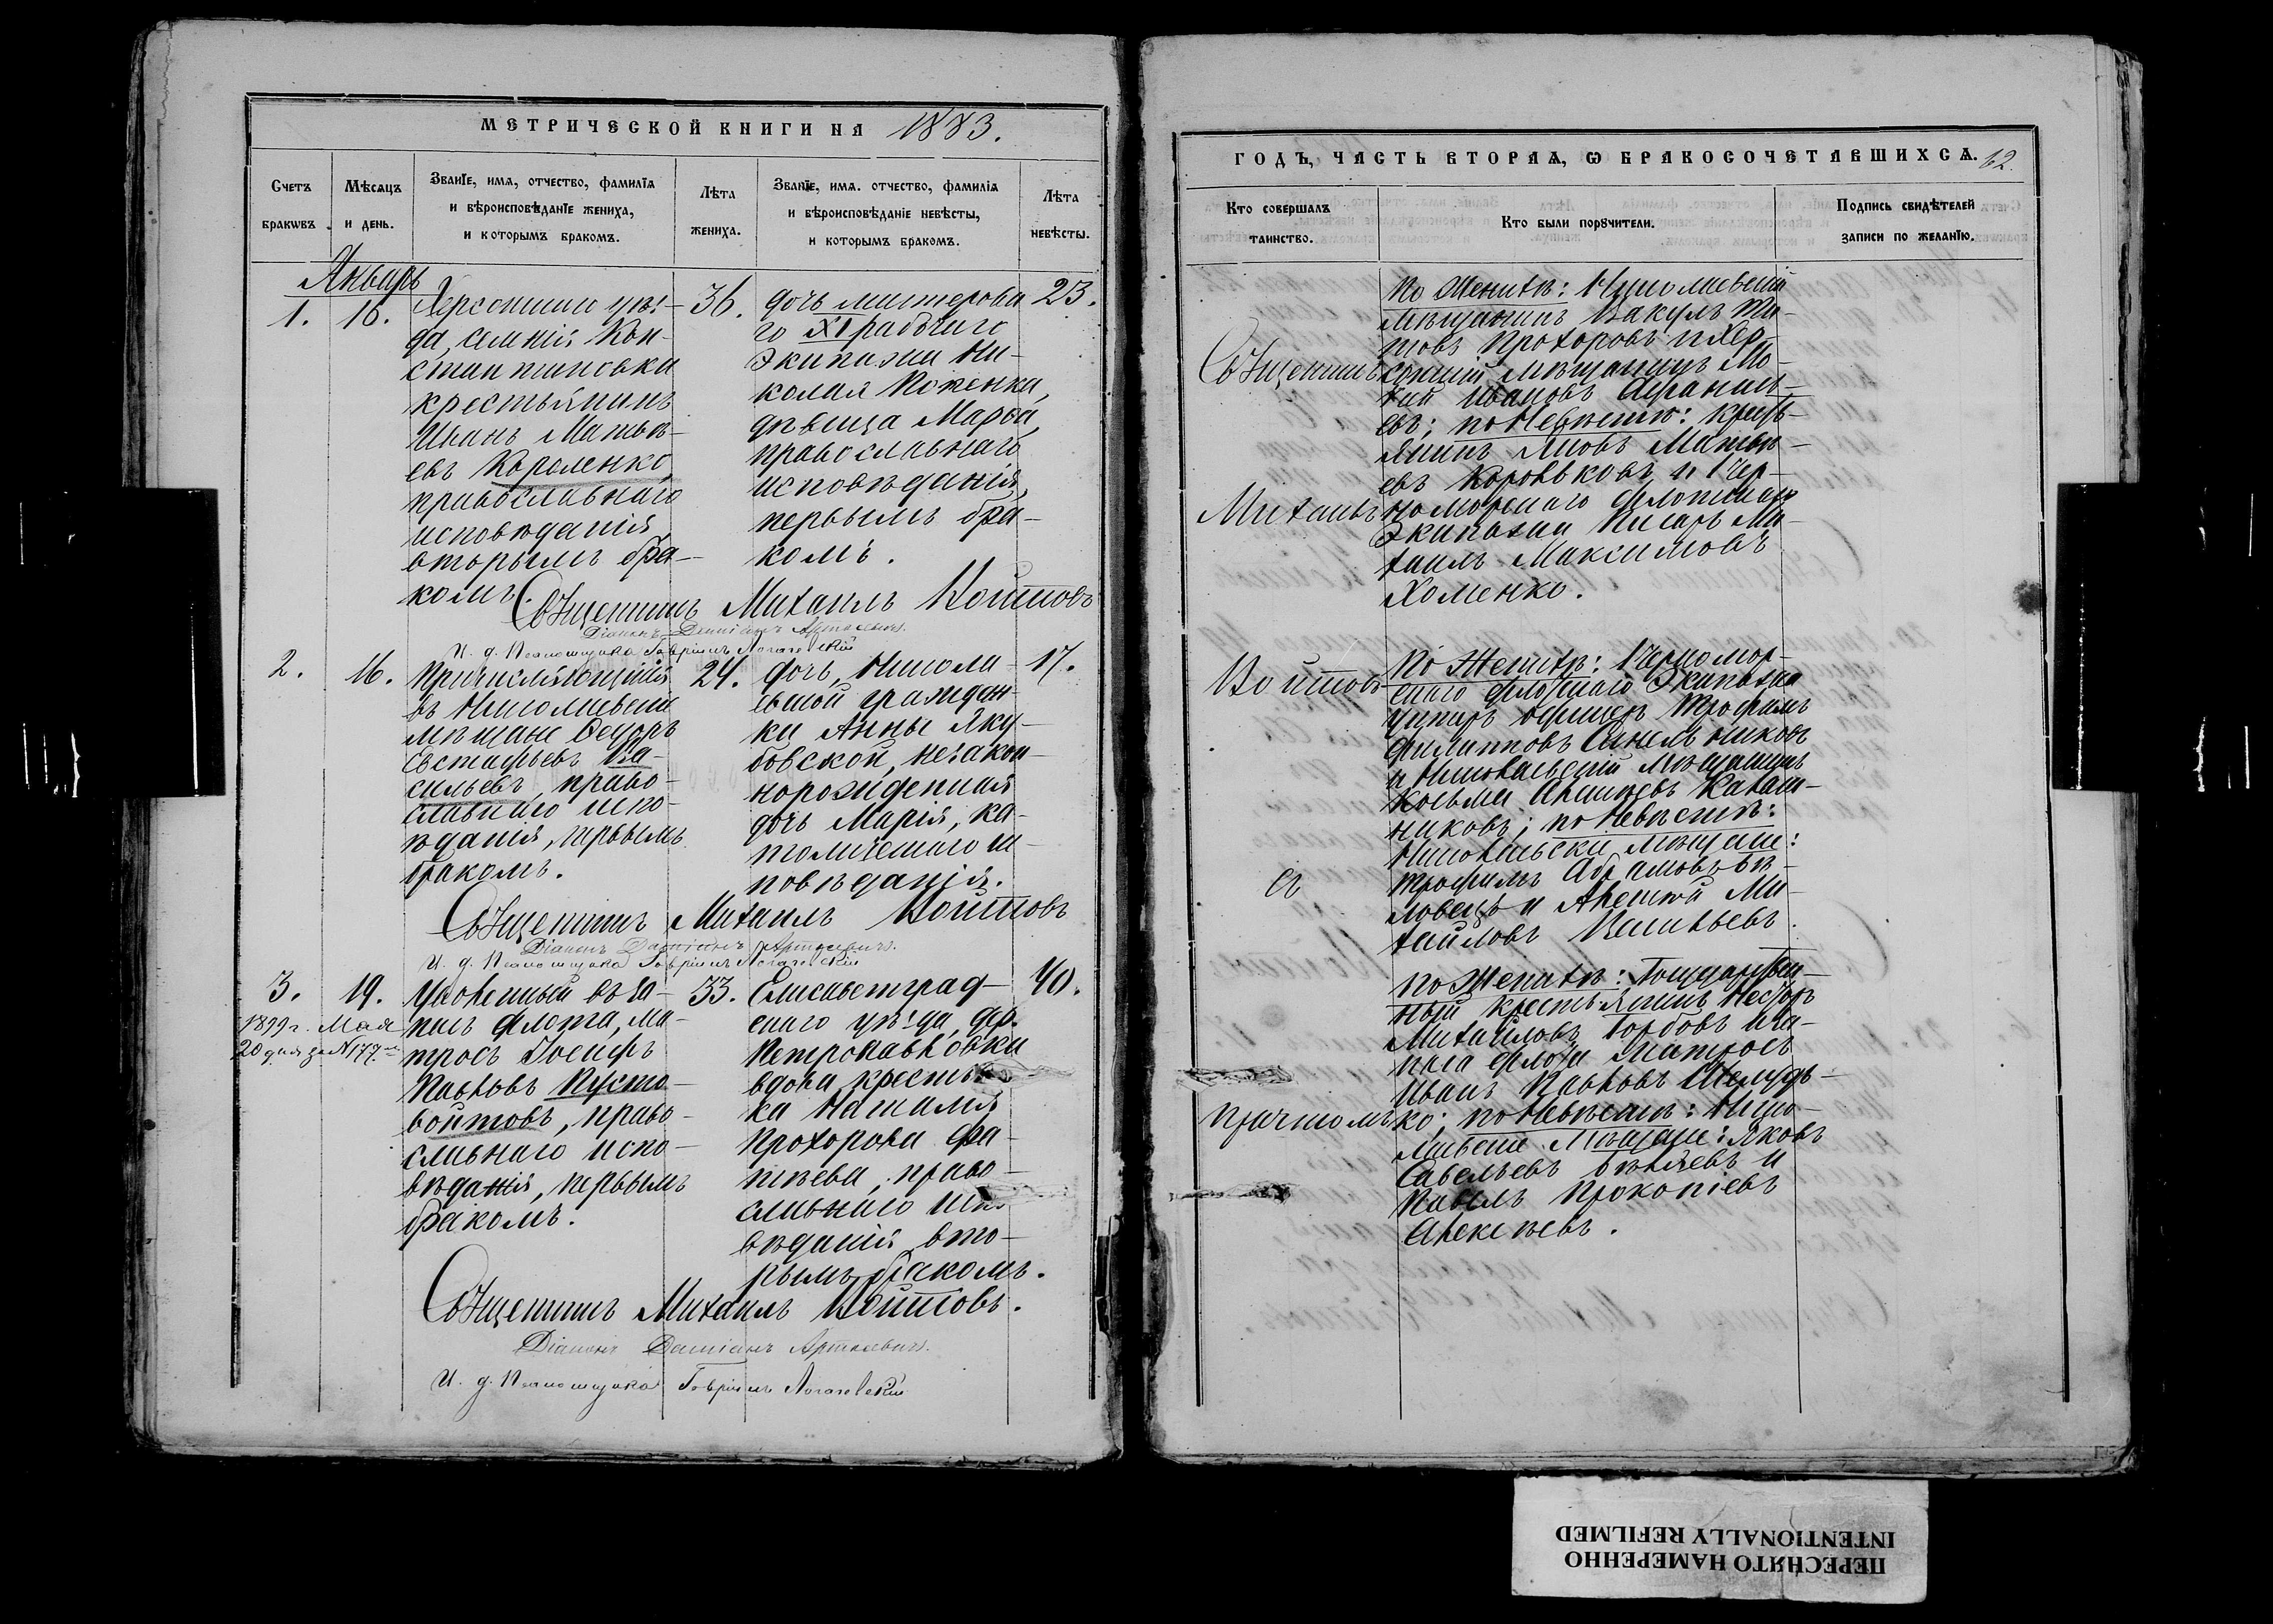 МЕТРИЧЕСКОЙ КНИГИ НА 1883.
Счетъ браковъ.
Мѣсяцъ и день.
Званіе, имя, отчество, фамилія
и вѣроисповѣданіе жениха,
и которымъ бракомъ.
Лѣта
жениха.
Званіе, имя, отчество, фамилія
и вѣроисповѣданіе невѣсты,
и которымъ бракомъ.
Лѣта
невѣсты.
Январь
1.
16.
Херсонскаго уѣз-
да, селенія Кон-
стантиновки
крестьянинъ
Иванъ Матвѣ-
евъ Короленко,
православнаго
исповѣданія
вторымъ бра-
комъ.
36.
дочь мастерова
го XI рабочаго
Экипажа Ни-
колая
дѣвица Марѳа,
православнаго
исповѣданія,
первымъ бра-
комъ.
23.
Священникъ Михаилъ Войтовъ
Діаконъ Даміанъ
И. д. Псаломщика Гавріилъ
2.
16.
Причисляющійся
въ Николаевскіе
мѣщане Ѳедоръ
Евстафьевъ Ва-
сильевъ, право-
славнаго испо-
вѣданія, первымъ
бракомъ.
24.
дочь, Никола-
евской граждан-
ки Анны Яку-
бовской, незакон-
норожденная
дочь Марія, ка-
толическаго ис-
повѣданія.
17.
Священникъ Михаилъ Войтовъ
Діаконъ Даміанъ
И. д. Псаломщика Гавріилъ
3.
1899 г. Мая
20 дня за № 177
19.
Уволенный въ за-
пасъ флота, ма-
тросъ Іосифъ
Павловъ Пусто-
войтовъ, право-
славнаго испо-
вѣданія, первымъ
бракомъ.
33.
Елисаветград-
скаго уѣзда, дер.
Петропавловки
вдова крестьян
ка Наталія
Прохорова Фа-
православнаго испо
вѣданія, вто-
рымъ бракомъ.
40.
Священникъ Михаилъ Войтовъ.
Діаконъ Даміанъ
И. д. Псаломщика Гавріилъ
ГОДЪ, ЧАСТЬ ВТОРАЯ, Ѡ БРАКОСОЧЕТАВШИХСЯ. 62.
Кто совершалъ
таинство.
Кто были поручители.
Подпись свидѣтелей
записи по желанію.
Священникъ
Михаилъ
Войтовъ
съ
причтомъ
По Женихѣ: Николаевскій
мѣщанинъ Вакулъ Ти-
товъ Прохоровъ и Хер-
сонскій мѣщанинъ Мо-
кій Ивановъ Афанась-
евъ; по Невѣстѣ: кресть-
янинъ Матвѣ-
евъ Коровковъ и Чер-
номорскаго флотскаго
Экипажа писарь Ми-
хаилъ Максимовъ
Хоменко.
По Женихѣ: Черномор-
скаго флотскаго Экипажа
унтеръ офицеръ Трофимъ
Филипповъ Синельниковъ
и Николаевскій мѣщанинъ
Козьма
по Невѣстѣ:
Николаевскіе мѣщане:
Трофимъ Абрамовъ Бѣ-
ловецъ и Алексѣй Ми-
хайловъ
По Женихѣ: Государствен-
ный крестьянинъ Несторъ
Михайловъ Горбовъ и за-
паса флота матросъ
Иванъ Павловъ Шелудь-
ко; по Невѣстѣ: Нико-
лаевскіе мѣщане: Яковъ
Савельевъ Бѣляевъ и
Павелъ Прокопіевъ
Алексѣевъ.
ПЕРЕСНЯТО НАМЕРЕННО
INTENTIONALLY REFILMED